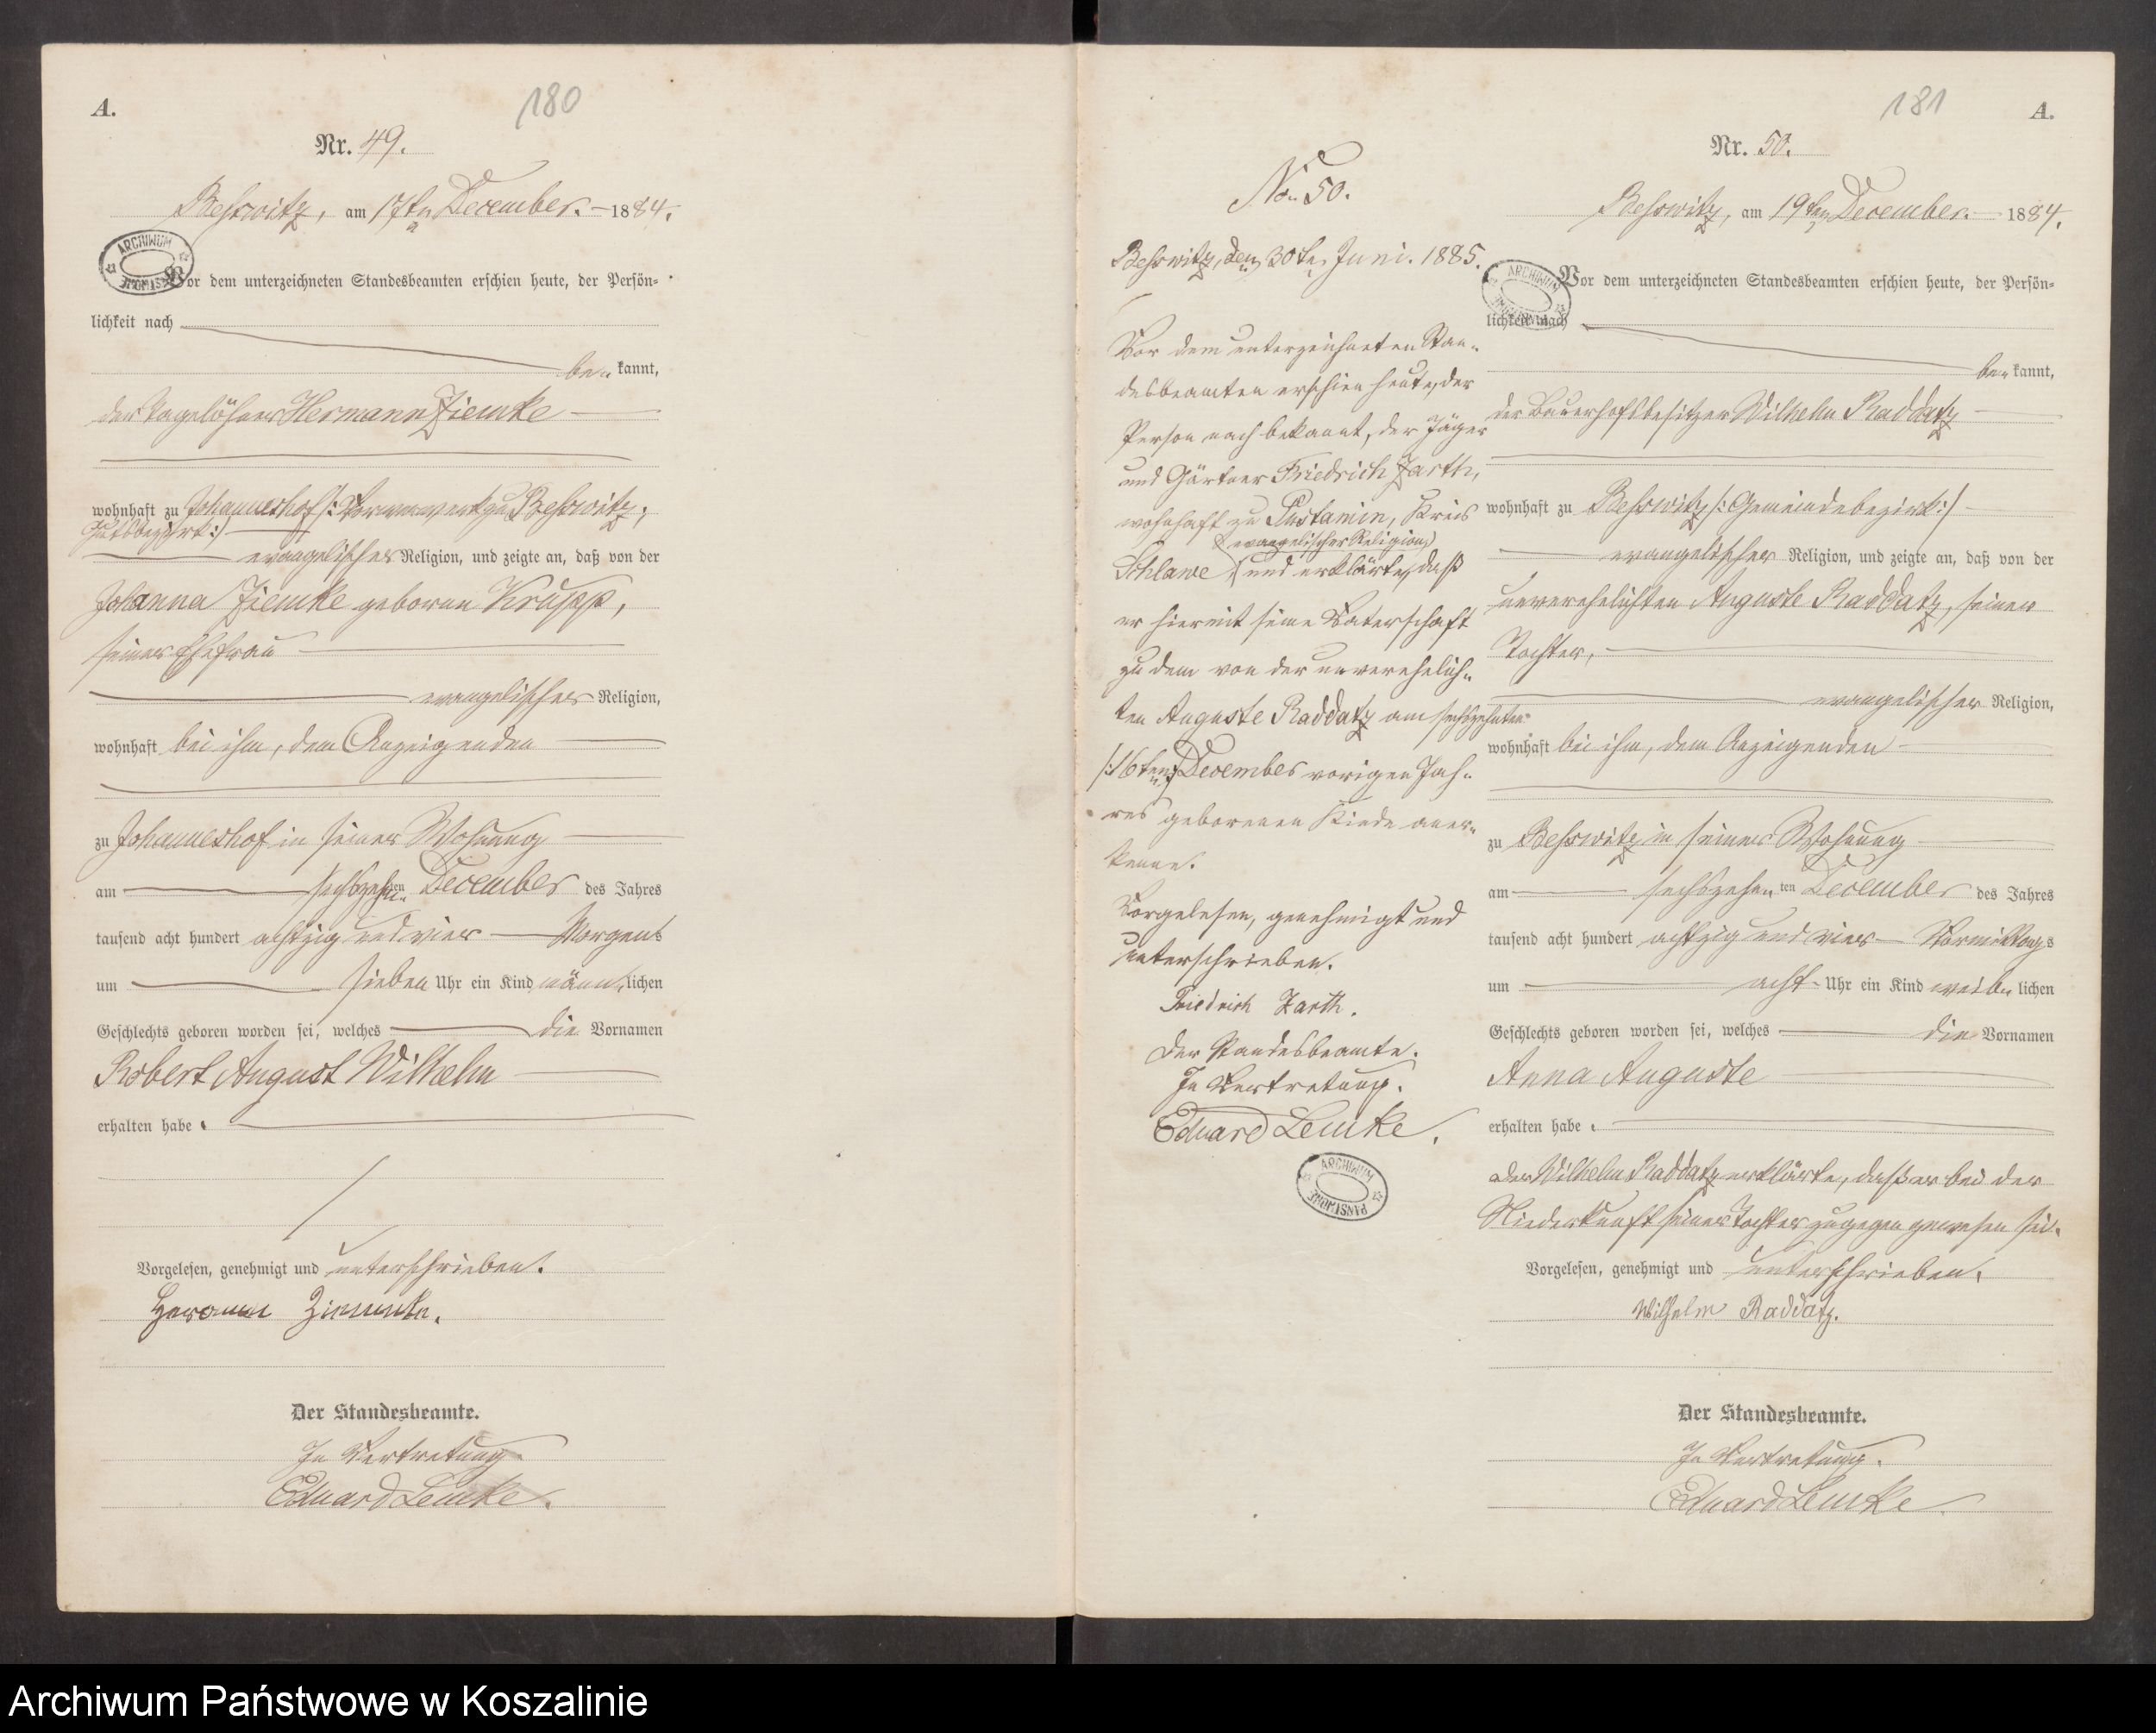 A.
180
Nr. 49.
Beßwitz, am 17ten December. 1884.
ARCHIWUM
PAŃSTWOWE
Vor dem unterzeichneten Standesbeamten erschien heute, der Persön-
lichkeit nach
be- kannt,
der Tagelöhner Hermann Ziemke
wohnhaft zu Johanneshof /: Vorwerk zu Beßwitz;
Gutsbezirk :/
evangelischer Religion, und zeigte an, daß von der
Johanna Ziemke geborne Krupp,
seiner Ehefrau
evangelischer Religion,
wohnhaft bei ihm, dem Anzeigenden
zu Johanneshof in seiner Wohnung
am sechszehnten December des Jahres
tausend acht hundert achtzig und vier Morgens
um sieben Uhr ein Kind männ- lichen
Geschlechts geboren worden sei, welches die Vornamen
Robert August Wilhelm
erhalten habe.
Vorgelesen, genehmigt und unterschrieben.
Hermann Ziemke.
Der Standesbeamte.
In Vertretung
Eduard Lemke.
No. 50.
Beßwitz, den 30ten Juni. 1885.
Vor dem unterzeichneten Stan-
desbeamten erschien heute, der
Person nach bekannt, der Jäger
und Gärtner Friedrich Zarth,
wohnhaft zu Pustamin, Kreis
evangelischer Religion,
Schlawe und erklärte, daß
er hiermit seine Vaterschaft
zu dem von der unverehelich-
ten Auguste Raddatz am sechszehnten
/: 16ten :/ December vorigen Jah-
res geborenen Kinde aner-
kenne.
Vorgelesen, genehmigt und
unterschrieben.
Friedrich Zarth.
Der Standesbeamte.
In Vertretung.
Eduard Lemke.
ARCHIWUM
PAŃSTWOWE
181
A.
Nr. 50.
Beßwitz, am 19ten December. 1884.
ARCHIWUM
PAŃSTWOWE
Vor dem unterzeichneten Standesbeamten erschien heute, der Persön-
lichkeit nach
be- kannt,
der Bauerhofsbesitzer Wilhelm Raddatz
wohnhaft zu Beßwitz /: Gemeindebezirk :/
evangelischer Religion, und zeigte an, daß von der
unverehelichten Auguste Raddatz, seiner
Tochter,
evangelischer Religion,
wohnhaft bei ihm, dem Anzeigenden
zu Beßwitz in seiner Wohnung
am sechszehnten December des Jahres
tausend acht hundert achtzig und vier Vormittags
um acht Uhr ein Kind weib- lichen
Geschlechts geboren worden sei, welches die Vornamen
Anna Auguste
erhalten habe.
Der Wilhelm Raddatz erklärte, daß er bei der
Niederkunft seiner Tochter zugegen gewesen sei.
Vorgelesen, genehmigt und unterschrieben.
Wilhelm Raddatz.
Der Standesbeamte.
In Vertretung.
Eduard Lemke
Archiwum Państwowe w Koszalinie